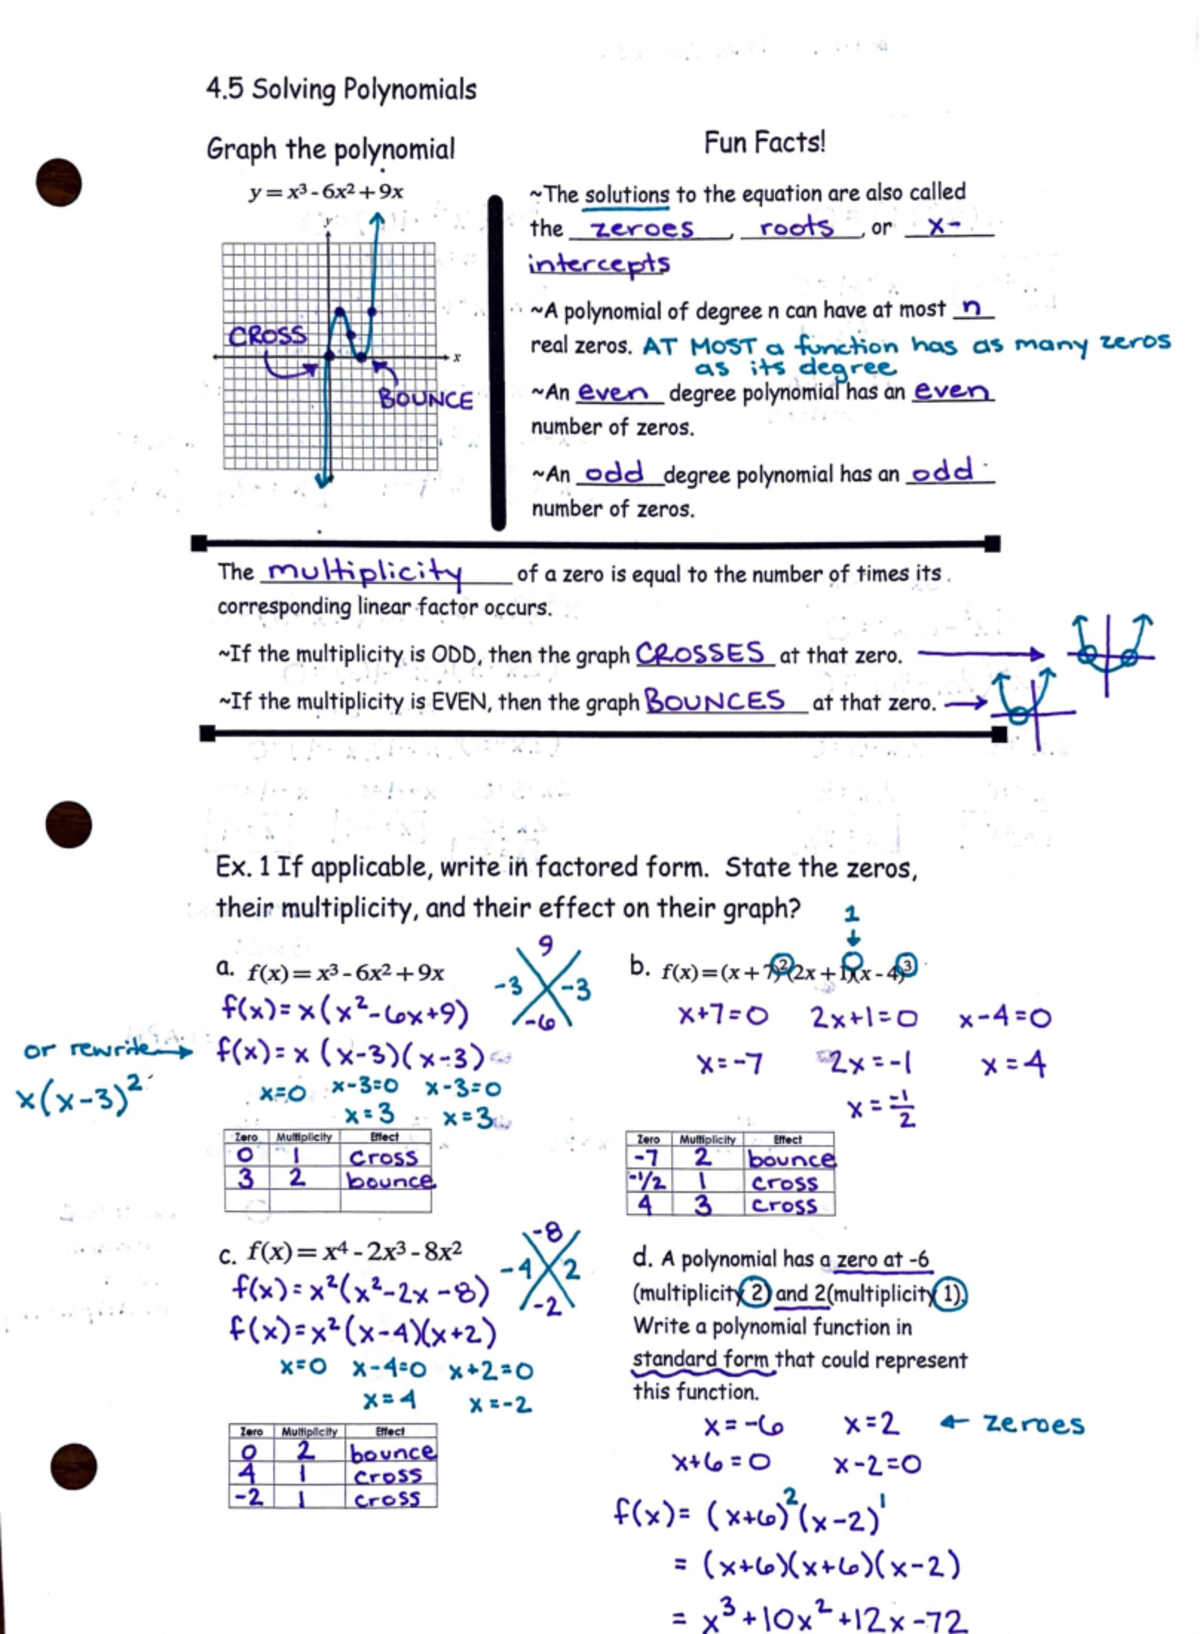 4.5 Solving Polynomials
Graph the polynomial
y = x³ - 6x² + 9x
y
x
CROSS
BOUNCE
Fun Facts!
~The solutions to the equation are also called
the zeroes, roots, or x-
intercepts
~A polynomial of degree n can have at most n
real zeros. AT MOST a function has as many zeros
as its degree
~An even degree polynomial has an even
number of zeros.
~An odd degree polynomial has an odd
number of zeros.
The multiplicity of a zero is equal to the number of times its
corresponding linear factor occurs.
~If the multiplicity is ODD, then the graph CROSSES at that zero.
~If the multiplicity is EVEN, then the graph BOUNCES at that zero.
Ex. 1 If applicable, write in factored form. State the zeros,
their multiplicity, and their effect on their graph?
a. f(x) = x³ - 6x² + 9x
9
-3 -3
-6
f(x) = x(x²-6x+9)
or rewrite
f(x) = x (x-3)(x-3)
x(x-3)²
x=0 x-3=0 x-3=0
x=3 x=3
Zero Multiplicity Effect
0 1 cross
3 2 bounce
1
b. f(x) = (x+7)²(2x+1)(x-4)³
x+7=0 2x+1=0 x-4=0
x=-7 2x=-1 x=4
x = -1/2
Zero Multiplicity Effect
-7 2 bounce
-1/2 1 cross
4 3 cross
c. f(x) = x⁴ - 2x³ - 8x²
-8
-4 2
-2
f(x) = x²(x²-2x-8)
f(x) = x²(x-4)(x+2)
x=0 x-4=0 x+2=0
x=4 x=-2
Zero Multiplicity Effect
0 2 bounce
4 1 cross
-2 1 cross
d. A polynomial has a zero at -6
(multiplicity 2) and 2(multiplicity 1).
Write a polynomial function in
standard form that could represent
this function.
x=-6 x=2 ← zeroes
x+6=0 x-2=0
f(x) = (x+6)²(x-2)¹
= (x+6)(x+6)(x-2)
= x³+10x²+12x-72